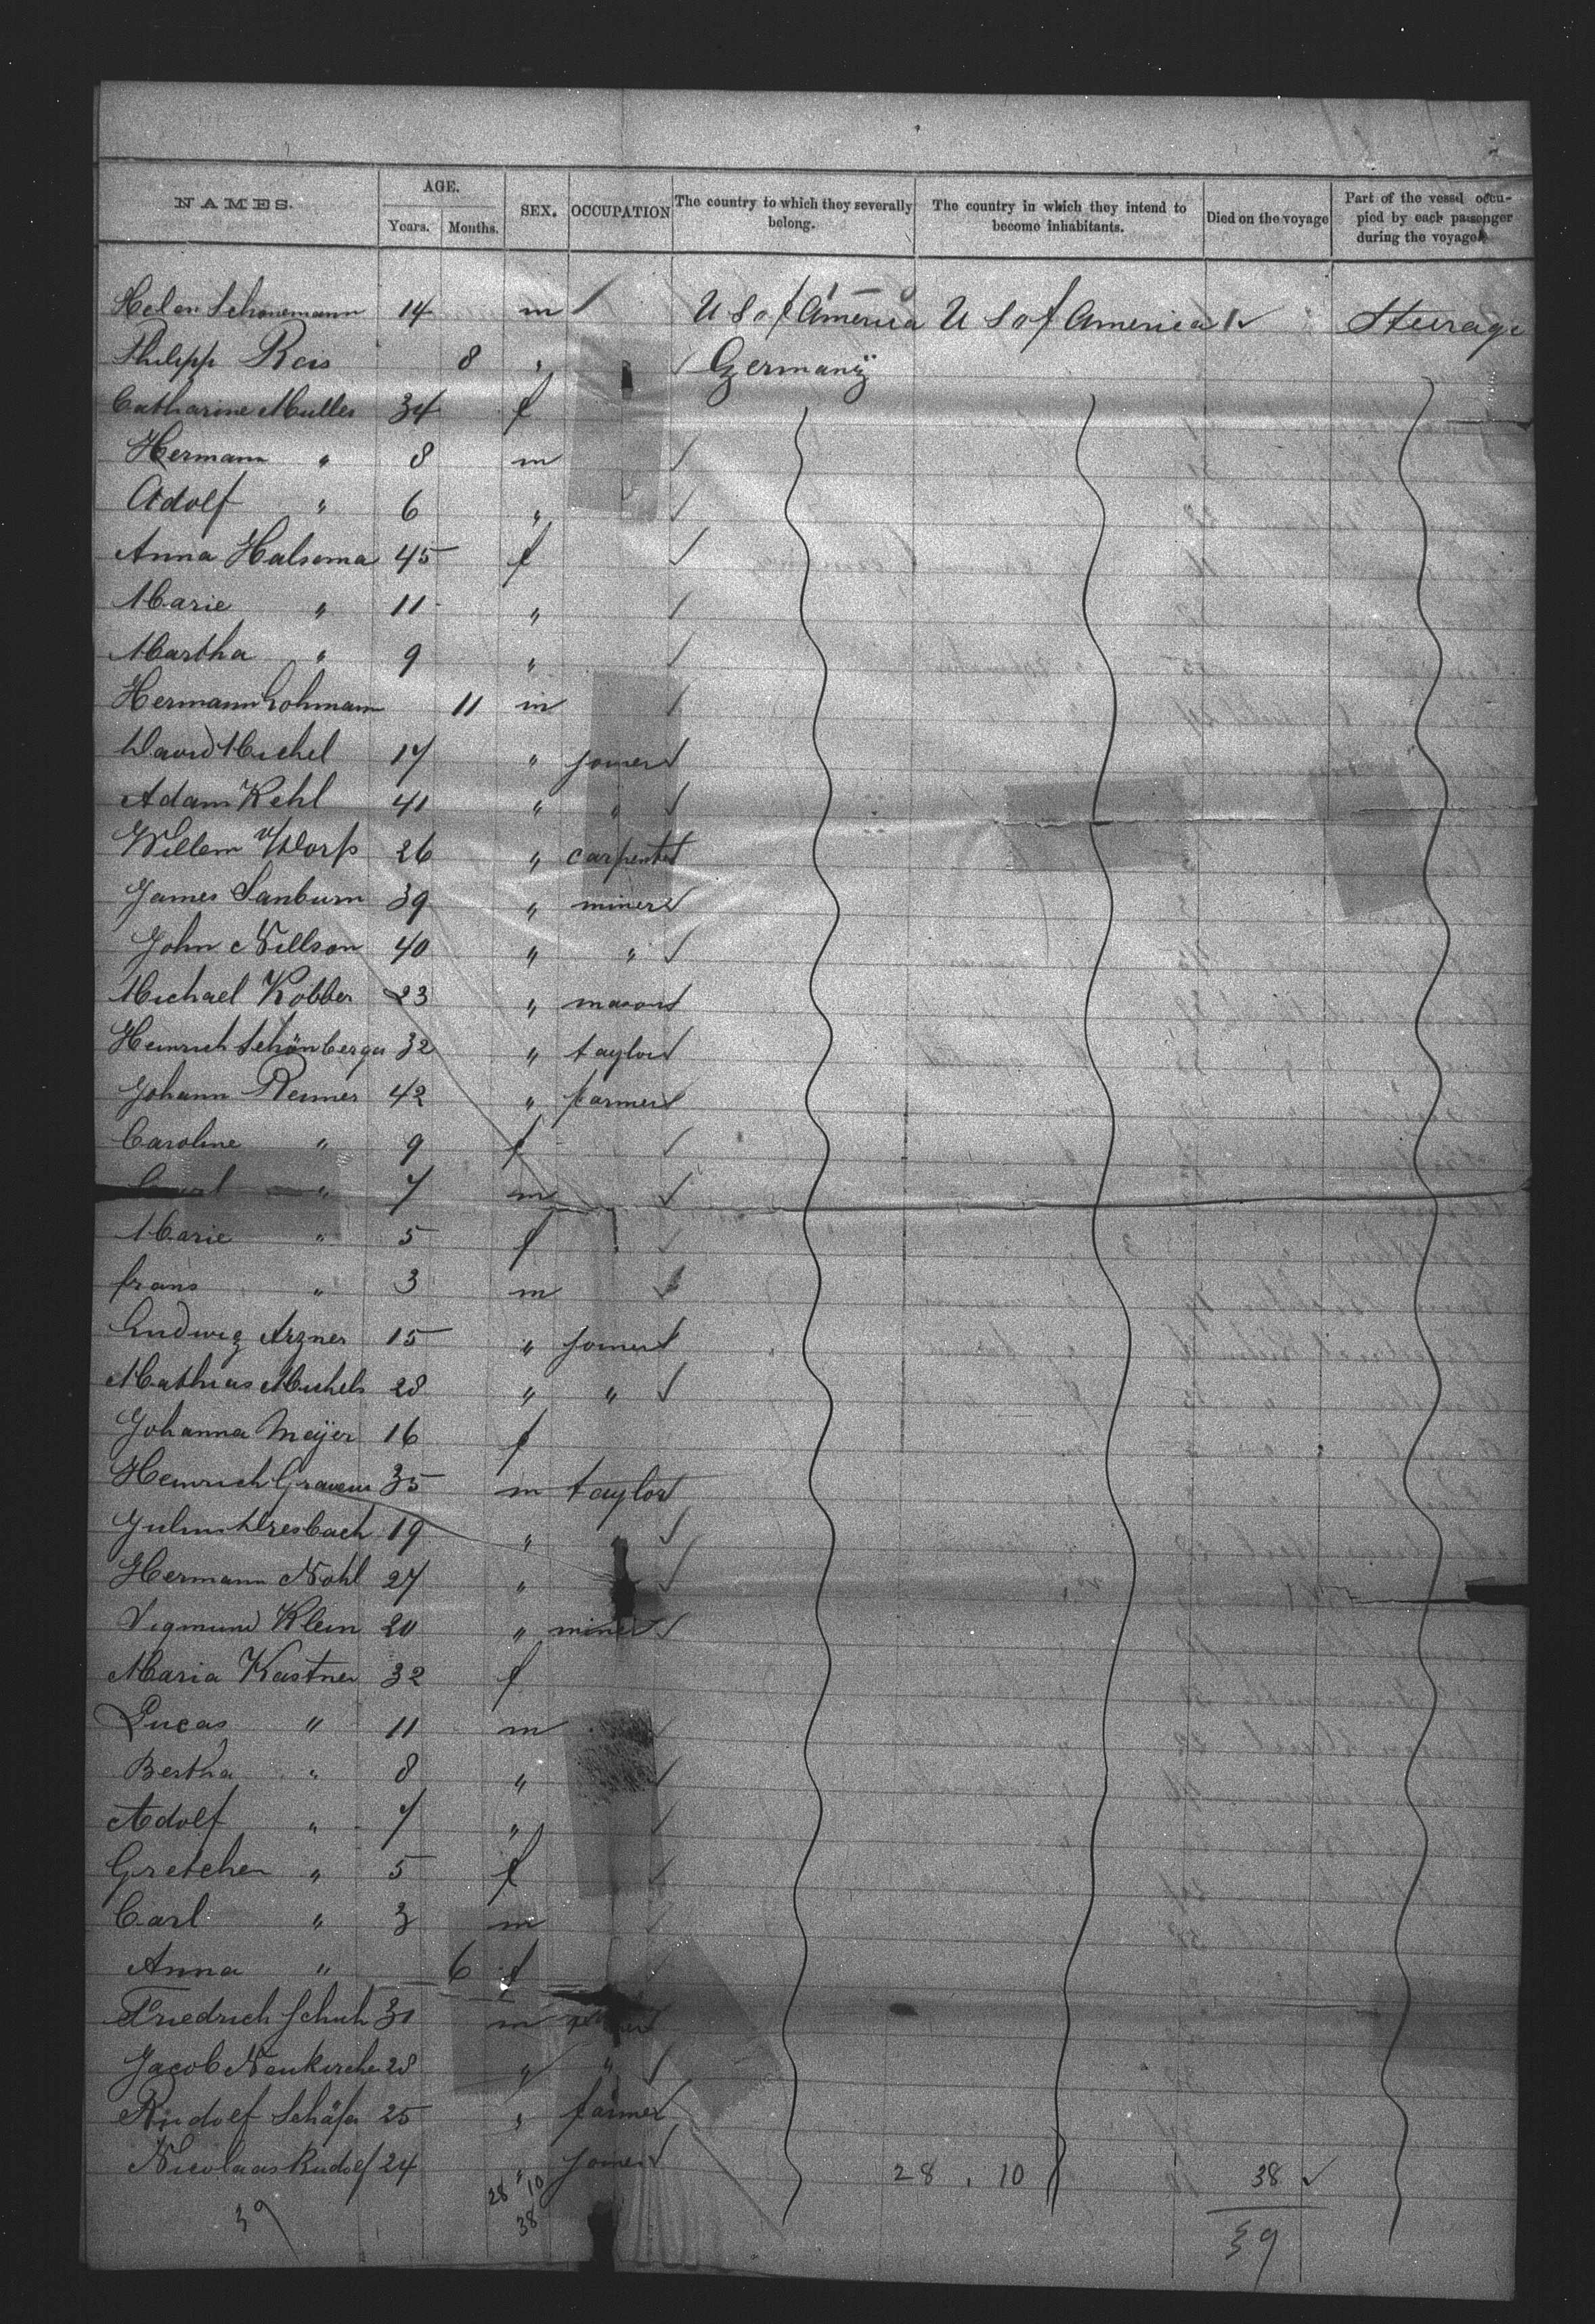 NAMES. AGE. Years. Months. SEX. OCCUPATION The country to which they severally belong. The country in which they intend to become inhabitants. Died on the voyage Part of the vessel occupied by each passenger during the voyage.
Helen Schonemann 14 m U S of America U S of America 1 Steerage
Philipp Reis 8 " Germany
Catharine Muller 34 f
Hermann " 8 m
Adolf " 6 "
Anna Halsema 45 f
Marie " 11 "
Martha " 9 "
Hermann Lohmann 11 m
David Michel 17 " joiner
Adam Kehl 41 " "
Willem v/Dorp 26 " carpenter
James Sanburn 39 " miner
John Nillson 40 " "
Michael Kobber 23 " mason
Heinrich Schönberger 32 " taylor
Johann Renner 42 " farmer
Caroline " 9 f
Carl " 7 m
Marie " 5 f
frans " 3 m
Ludwig Arzner 15 " joiner
Mathias Michels 28 " "
Johanna Meÿer 16 f
Heinrich 35 m taylor
Julius Dresbach 19 "
Hermann Nohl 27 "
Sigmund Klein 20 " miner
Maria Kastner 32 f
Lucas " 11 m
Bertha " 8 "
Adolf " 7 "
Gretchen " 5 f
Carl " 3 m
Anna " 6 f
Friedrich Schuh 31 m
Jacob Neukirchen 28 " "
Rudolf Schäfer 25 " farmer
Nicolaas Rudolf 24 " joiner
28 10 28 . 10 38
39 38 39